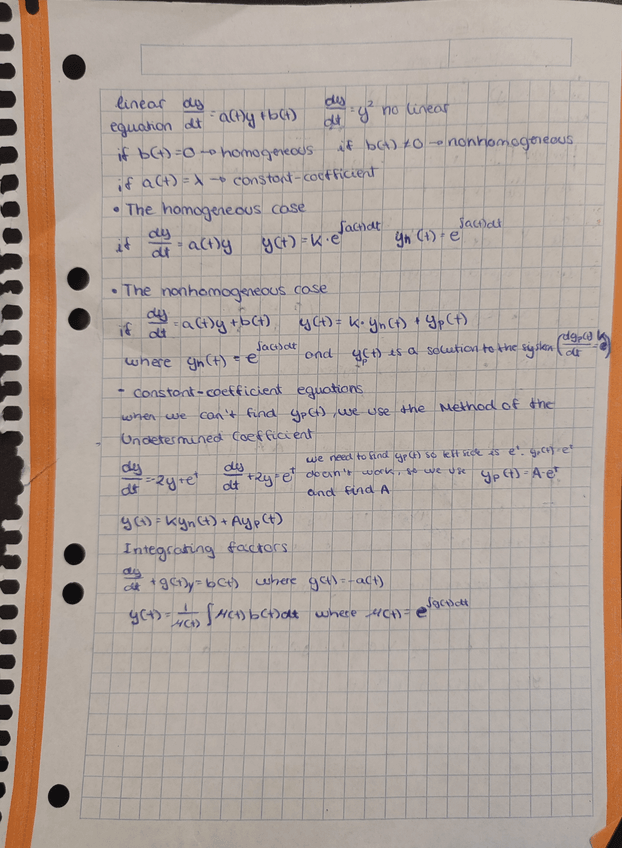 linear dy/dt = a(t)y + b(t) dy/dt = y² no linear
equation
if b(t) = 0 → homogeneous if b(t) ≠ 0 → nonhomogeneous
if a(t) = λ → constant-coefficient
• The homogeneous case
if dy/dt = a(t)y y(t) = k·e^∫a(t)dt yh(t) = e^∫a(t)dt
• The nonhomogeneous case
if dy/dt = a(t)y + b(t) y(t) = k·yh(t) + yp(t)
where yh(t) = e^∫a(t)dt and yp(t) is a solution to the system (dyp(t)/dt =
- constant-coefficient equations
when we can't find yp(t), we use the Method of the
Undetermined Coefficient
dy/dt = -2y + e^t dy/dt + 2y = e^t we need to find yp(t) so left side is e^t. yp(t) = e^t
doesn't work, so we use yp(t) = A·e^t
and find A
y(t) = kyh(t) + Ayp(t)
Integrating factors
dy/dt + g(t)y = b(t) where g(t) = -a(t)
y(t) = 1/μ(t) ∫ μ(t) b(t) dt where μ(t) = e^∫g(t)dt